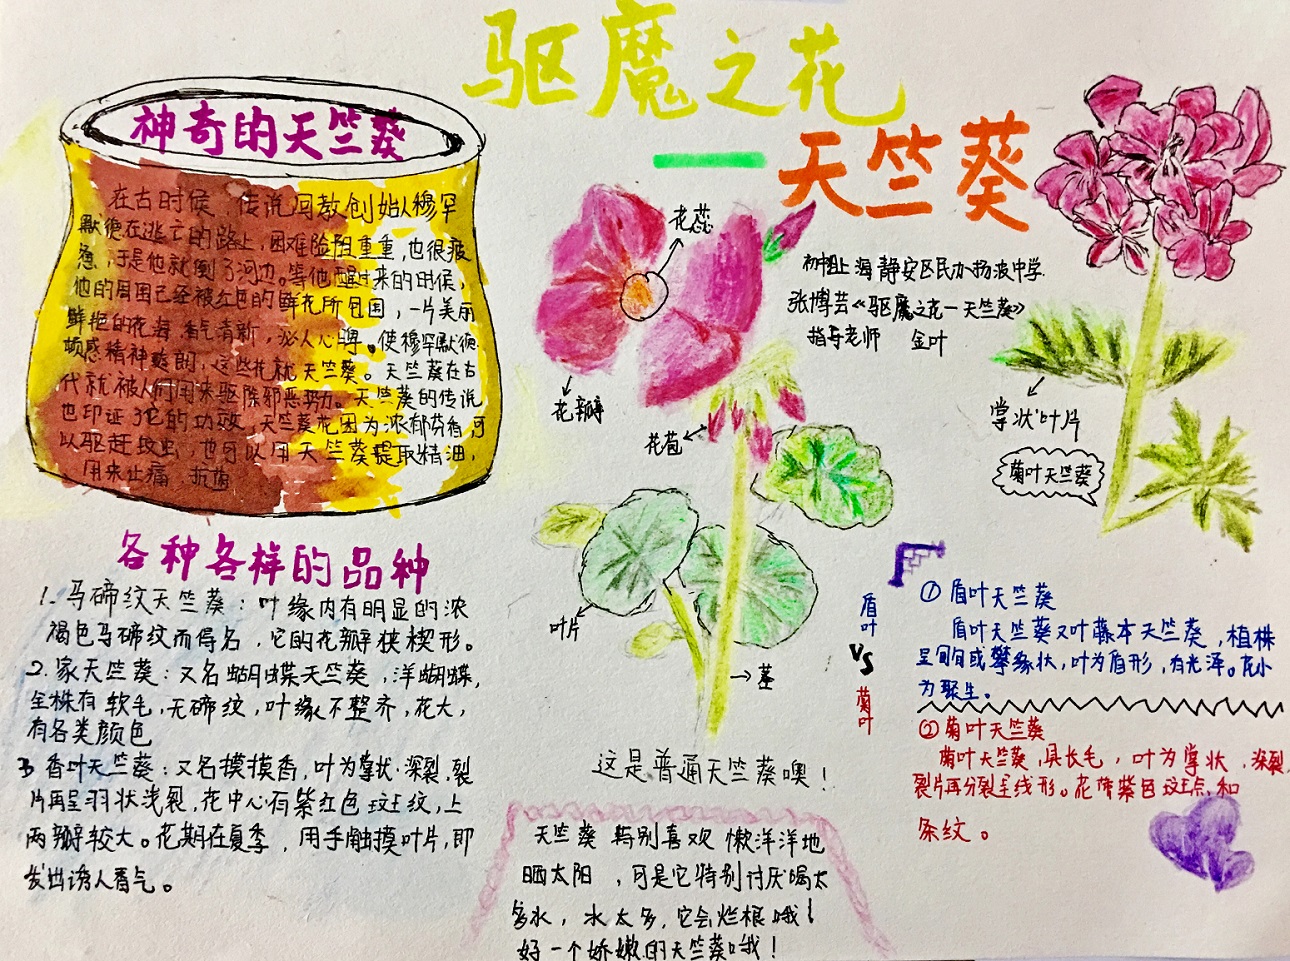 驱魔之花
—天竺葵
神奇的天竺葵
在古时候 传说回教创始人穆罕
默德在逃亡的路上,困难险阻重重,也很疲
惫,于是他就倒了河边。等他醒过来的时候,
他的周围已经被红色的鲜花所包围,一片美丽
鲜艳的花海 香气清新,沁人心脾。使穆罕默德
顿感精神爽朗,这些花就天竺葵。天竺葵在古
代就被人们用来驱除邪恶势力。天竺葵的传说
也印证了它的功效,天竺葵花因为浓郁芬香,可
以驱赶蚊虫,也可以用天竺葵提取精油,
用来止痛 抗菌
各种各样的品种
1. 马碲纹天竺葵:叶缘内有明显的浓
褐色马碲纹而得名,它的花瓣狭楔形。
2. 家天竺葵:又名蝴蝶天竺葵,洋蝴蝶,
全株有软毛,无碲纹,叶缘不整齐,花大,
有各类颜色
3 香叶天竺葵:又名摸摸香,叶为掌状深裂,裂
片再呈羽状浅裂,花中心有紫红色斑纹,上
两瓣较大。花期在夏季,用手触摸叶片,即
发出诱人香气。
花蕊
花瓣
花苞
叶片
茎
这是普通天竺葵噢!
天竺葵特别喜欢懒洋洋地
晒太阳,可是它特别讨厌喝太
多水,水太多,它会烂根哦!
好一个娇嫩的天竺葵哦!
初中组上海静安区民办扬波中学
张博芸《驱魔之花—天竺葵》
指导老师 金叶
掌状叶片
菊叶天竺葵
盾叶
VS
菊叶
① 盾叶天竺葵
盾叶天竺葵又叶藤本天竺葵,植株
呈匍匐或攀缘状,叶为盾形,有光泽。花小
为聚生。
② 菊叶天竺葵
菊叶天竺葵,具长毛,叶为掌状,深裂,
裂片再分裂呈线形。花带紫色斑点和
条纹。